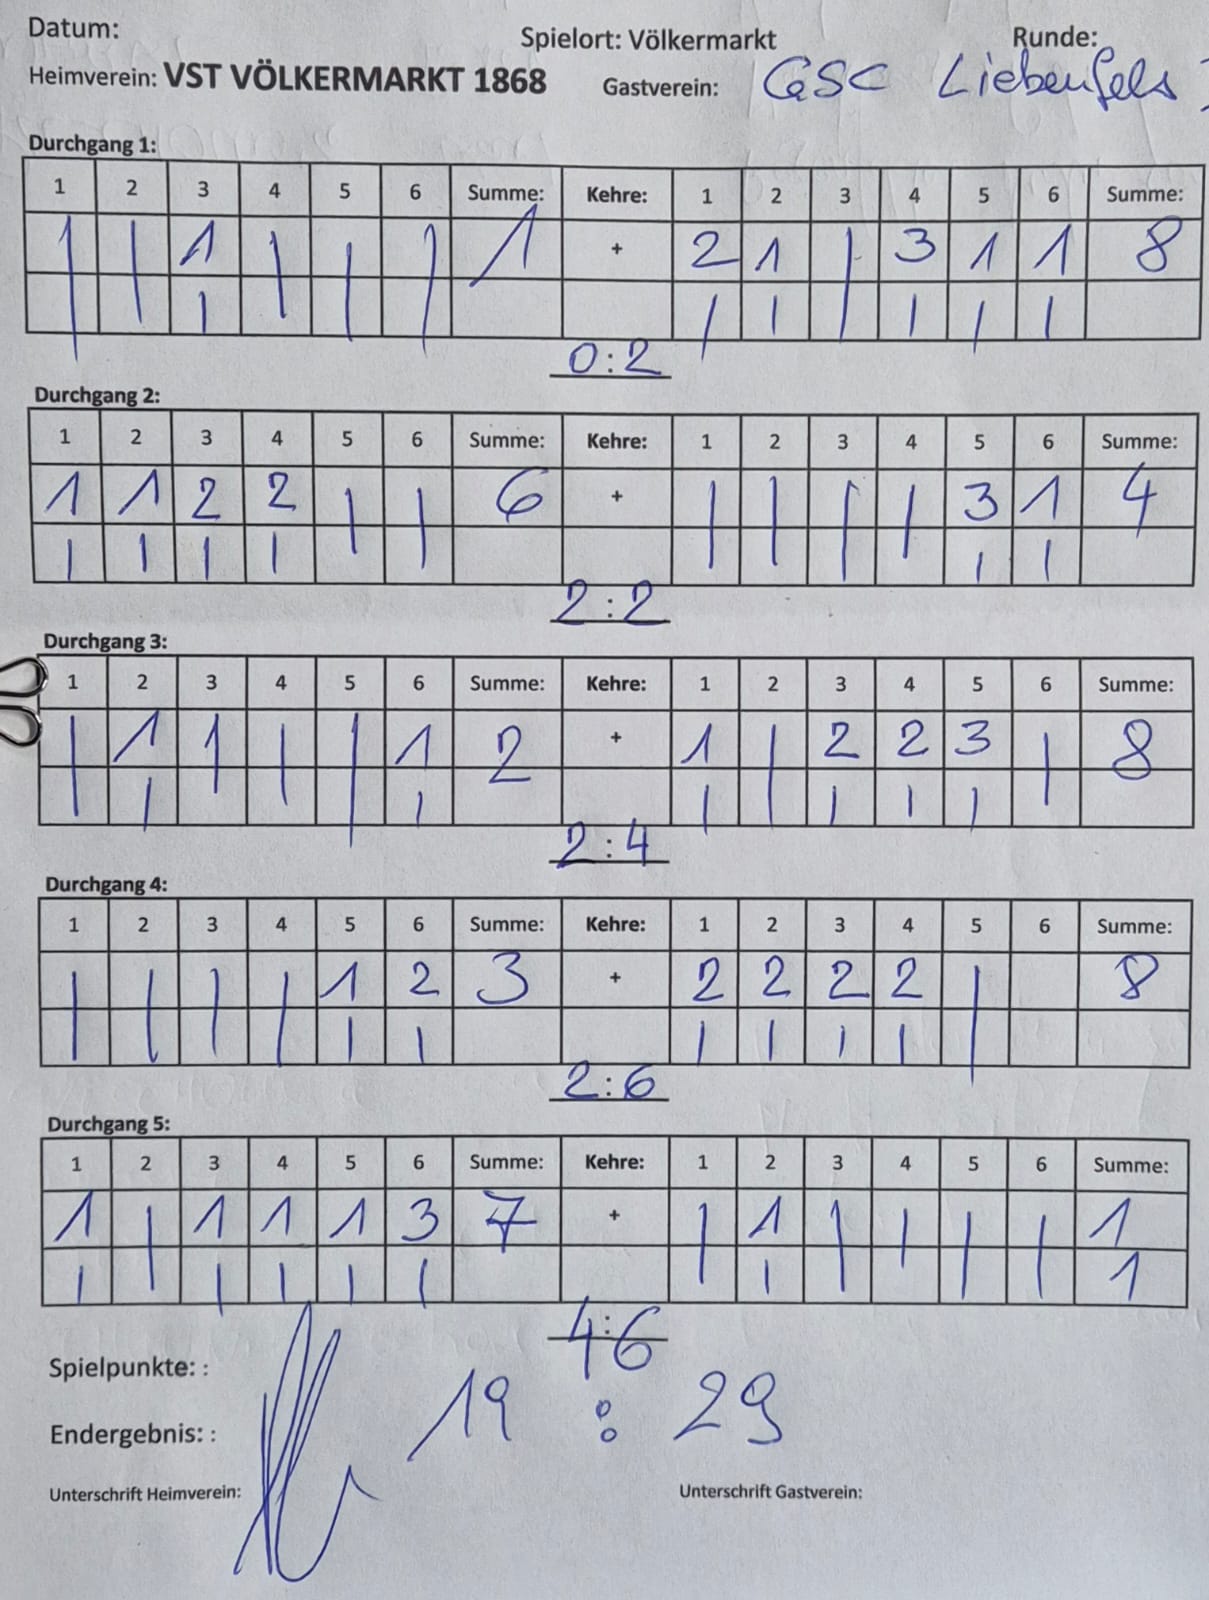 Datum:
Spielort: Völkermarkt Runde:
Heimverein: VST VÖLKERMARKT 1868 Gastverein: GSC Liebenfels
Durchgang 1:
1 2 3 4 5 6 Summe: Kehre: 1 2 3 4 5 6 Summe:
| | 1 | | | 1 + 2 1 | 3 1 1 8
| | | | | |
0:2
Durchgang 2:
1 2 3 4 5 6 Summe: Kehre: 1 2 3 4 5 6 Summe:
1 1 2 2 | | 6 + | | | | 3 1 4
| | | | | |
2:2
Durchgang 3:
1 2 3 4 5 6 Summe: Kehre: 1 2 3 4 5 6 Summe:
| 1 1 | | 1 2 + 1 | 2 2 3 | 8
| | | | | |
2:4
Durchgang 4:
1 2 3 4 5 6 Summe: Kehre: 1 2 3 4 5 6 Summe:
| | | | 1 2 3 + 2 2 2 2 | 8
| | | | | |
2:6
Durchgang 5:
1 2 3 4 5 6 Summe: Kehre: 1 2 3 4 5 6 Summe:
1 | 1 1 1 3 7 + | 1 | | | | 1
| | | | | | 1
4:6
Spielpunkte: :
19 : 29
Endergebnis: :
Unterschrift Heimverein: Unterschrift Gastverein: